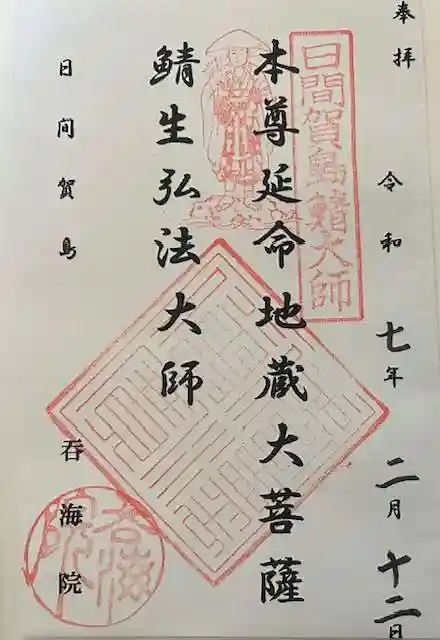 奉拝 令和七年二月十二日
日間賀島鯖大師
本尊延命地蔵大菩薩
鯖生弘法大師
日間賀島 呑海院